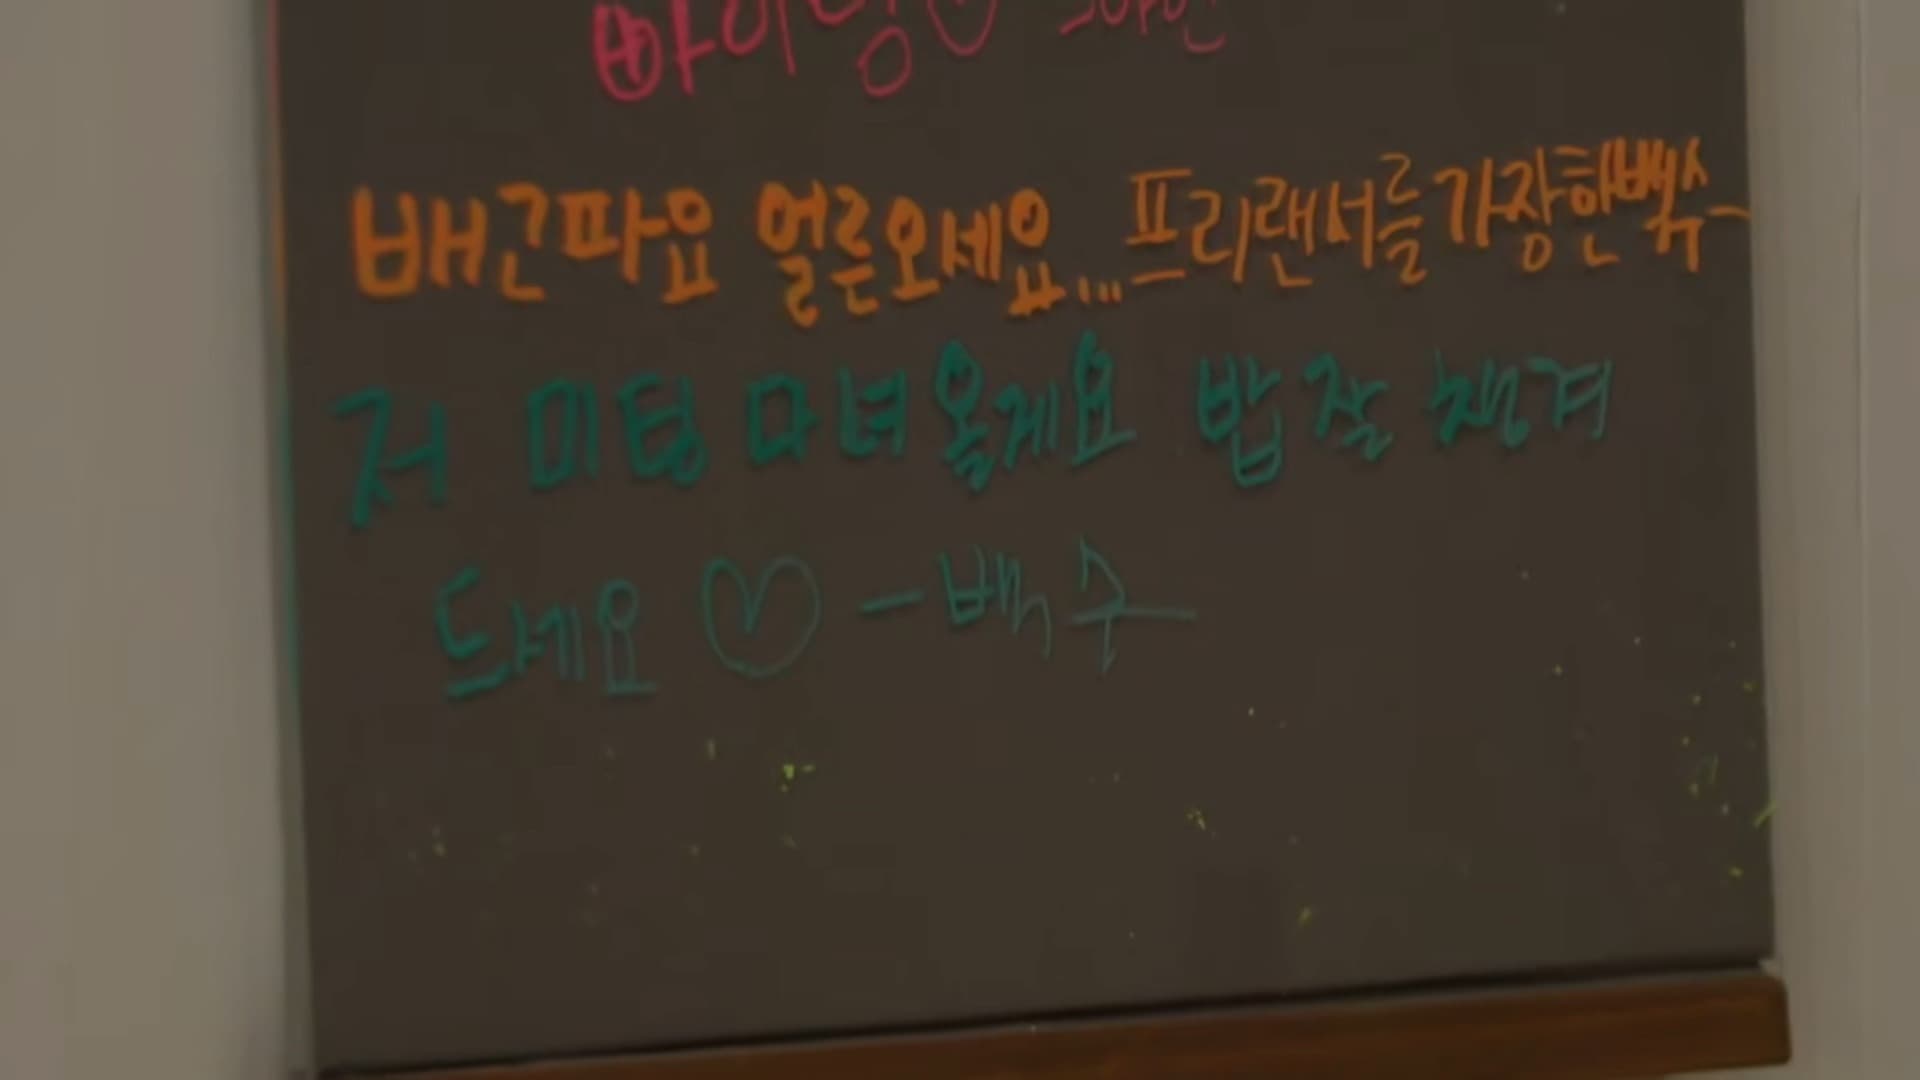 배고파요 얼른오세요... 프리랜서를가장한백수-
저 미팅 다녀올게요 밥 잘 챙겨
드세요♡ -백수